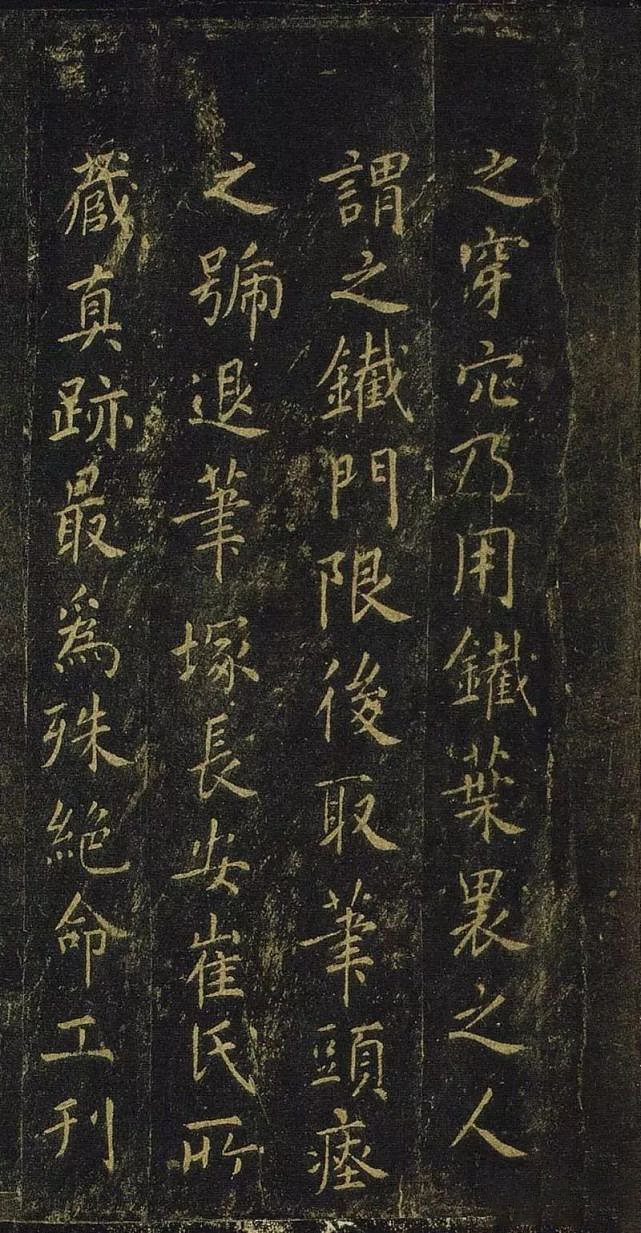 之穿穴乃用鐵葉裹之人
謂之鐵門限後取筆頭瘞
之號退筆塚長安崔氏所
藏真跡最為殊絕命工刊